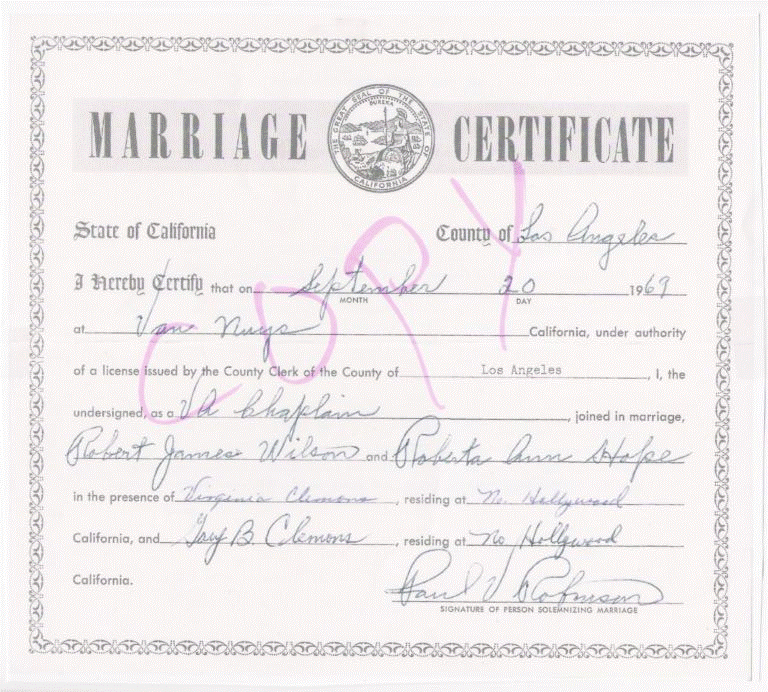 MARRIAGE CERTIFICATE
THE GREAT SEAL OF THE STATE OF CALIFORNIA
EUREKA
COPY
State of California County of Los Angeles
I Hereby Certify that on September 20 1969
MONTH DAY
at Van Nuys California, under authority
of a license issued by the County Clerk of the County of Los Angeles, I, the
undersigned, as a VA Chaplain, joined in marriage,
Robert James Wilson and Roberta Ann Hope
in the presence of Virginia Clemons, residing at No. Hollywood
California, and Gary B. Clemons, residing at No Hollywood
California. Paul V Robinson
SIGNATURE OF PERSON SOLEMNIZING MARRIAGE